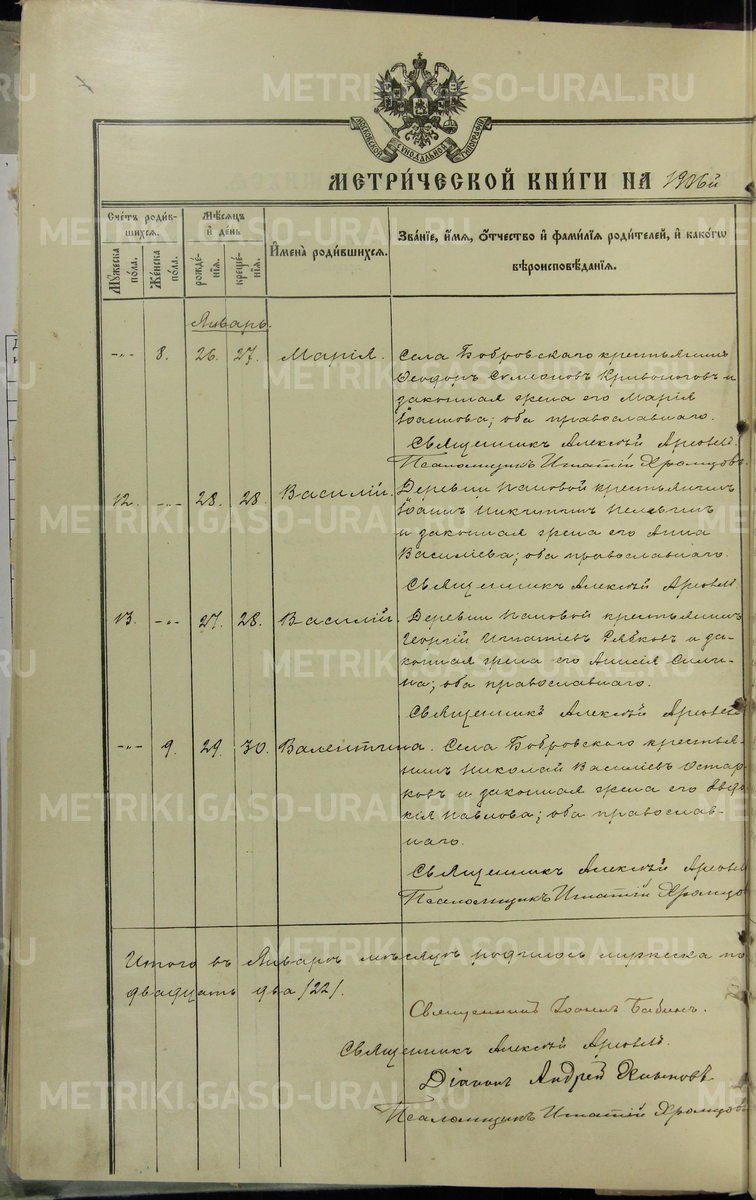 METRIKI.GASO-URAL.RU
МОСКОВСКОЙ СѴНОДАЛЬНОЙ ТИПОГРАФІИ
МЕТРИ́ЧЕСКОЙ КНИ́ГИ НА 1906й
Сче́тъ роди́в-
шихся.
Му́жеска по́ла.
Же́нска по́ла.
Мѣ́сяцъ
и҆ де́нь
рожде́-
нія.
креще́-
нія.
И҆мена̀ роди́вшихся.
Зва́ніе, и҆́мя, ѻ҆́тчество и҆ фами́лія роди́телей, и҆ како́гѡ
вѣроисповѣ́данія.
Январь.
-„- 8. 26. 27. Марія. Села Бобровскаго крестьянинъ
Ѳеодоръ Сѵмеоновъ Кривоноговъ и
законная жена его Марія
Іоаннова; оба православнаго.
Священникъ Алексѣй
Псаломщикъ Игнатій Хромцовъ
12. -„- 28. 28. Василій. Деревни крестьянинъ
Іоаннъ Никитинъ
и законная жена его Анна
Василіева; оба православнаго.
Священникъ Алексѣй
13. -„- 27. 28. Василій. Деревни крестьянинъ
Георгій Игнатіевъ Рябковъ и за-
конная жена его Анисія
оба православнаго.
Священникъ Алексѣй
-„- 9. 29. 30. Валентина. Села Бобровскаго крестья-
нинъ Николай Василіевъ
и законная жена его Евдо-
кія Павлова; оба православ-
наго.
Священникъ Алексѣй
Псаломщикъ Игнатій Хромцов
Итого въ Январѣ мѣсяцѣ родилось мужеска по
двадцать два /22/.
Священникъ Іоаннъ Бабинъ.
Священникъ Алексѣй
Діаконъ Андрей
Псаломщикъ Игнатій Хромцов